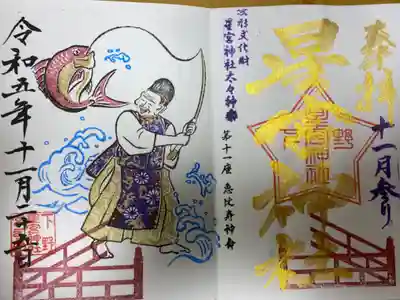 奉拝
十一月参り
星宮神社
下野
星宮神社
無形文化財
星宮神社太々神楽
第十一座 恵比寿神舞
令和五年十一月二十六日